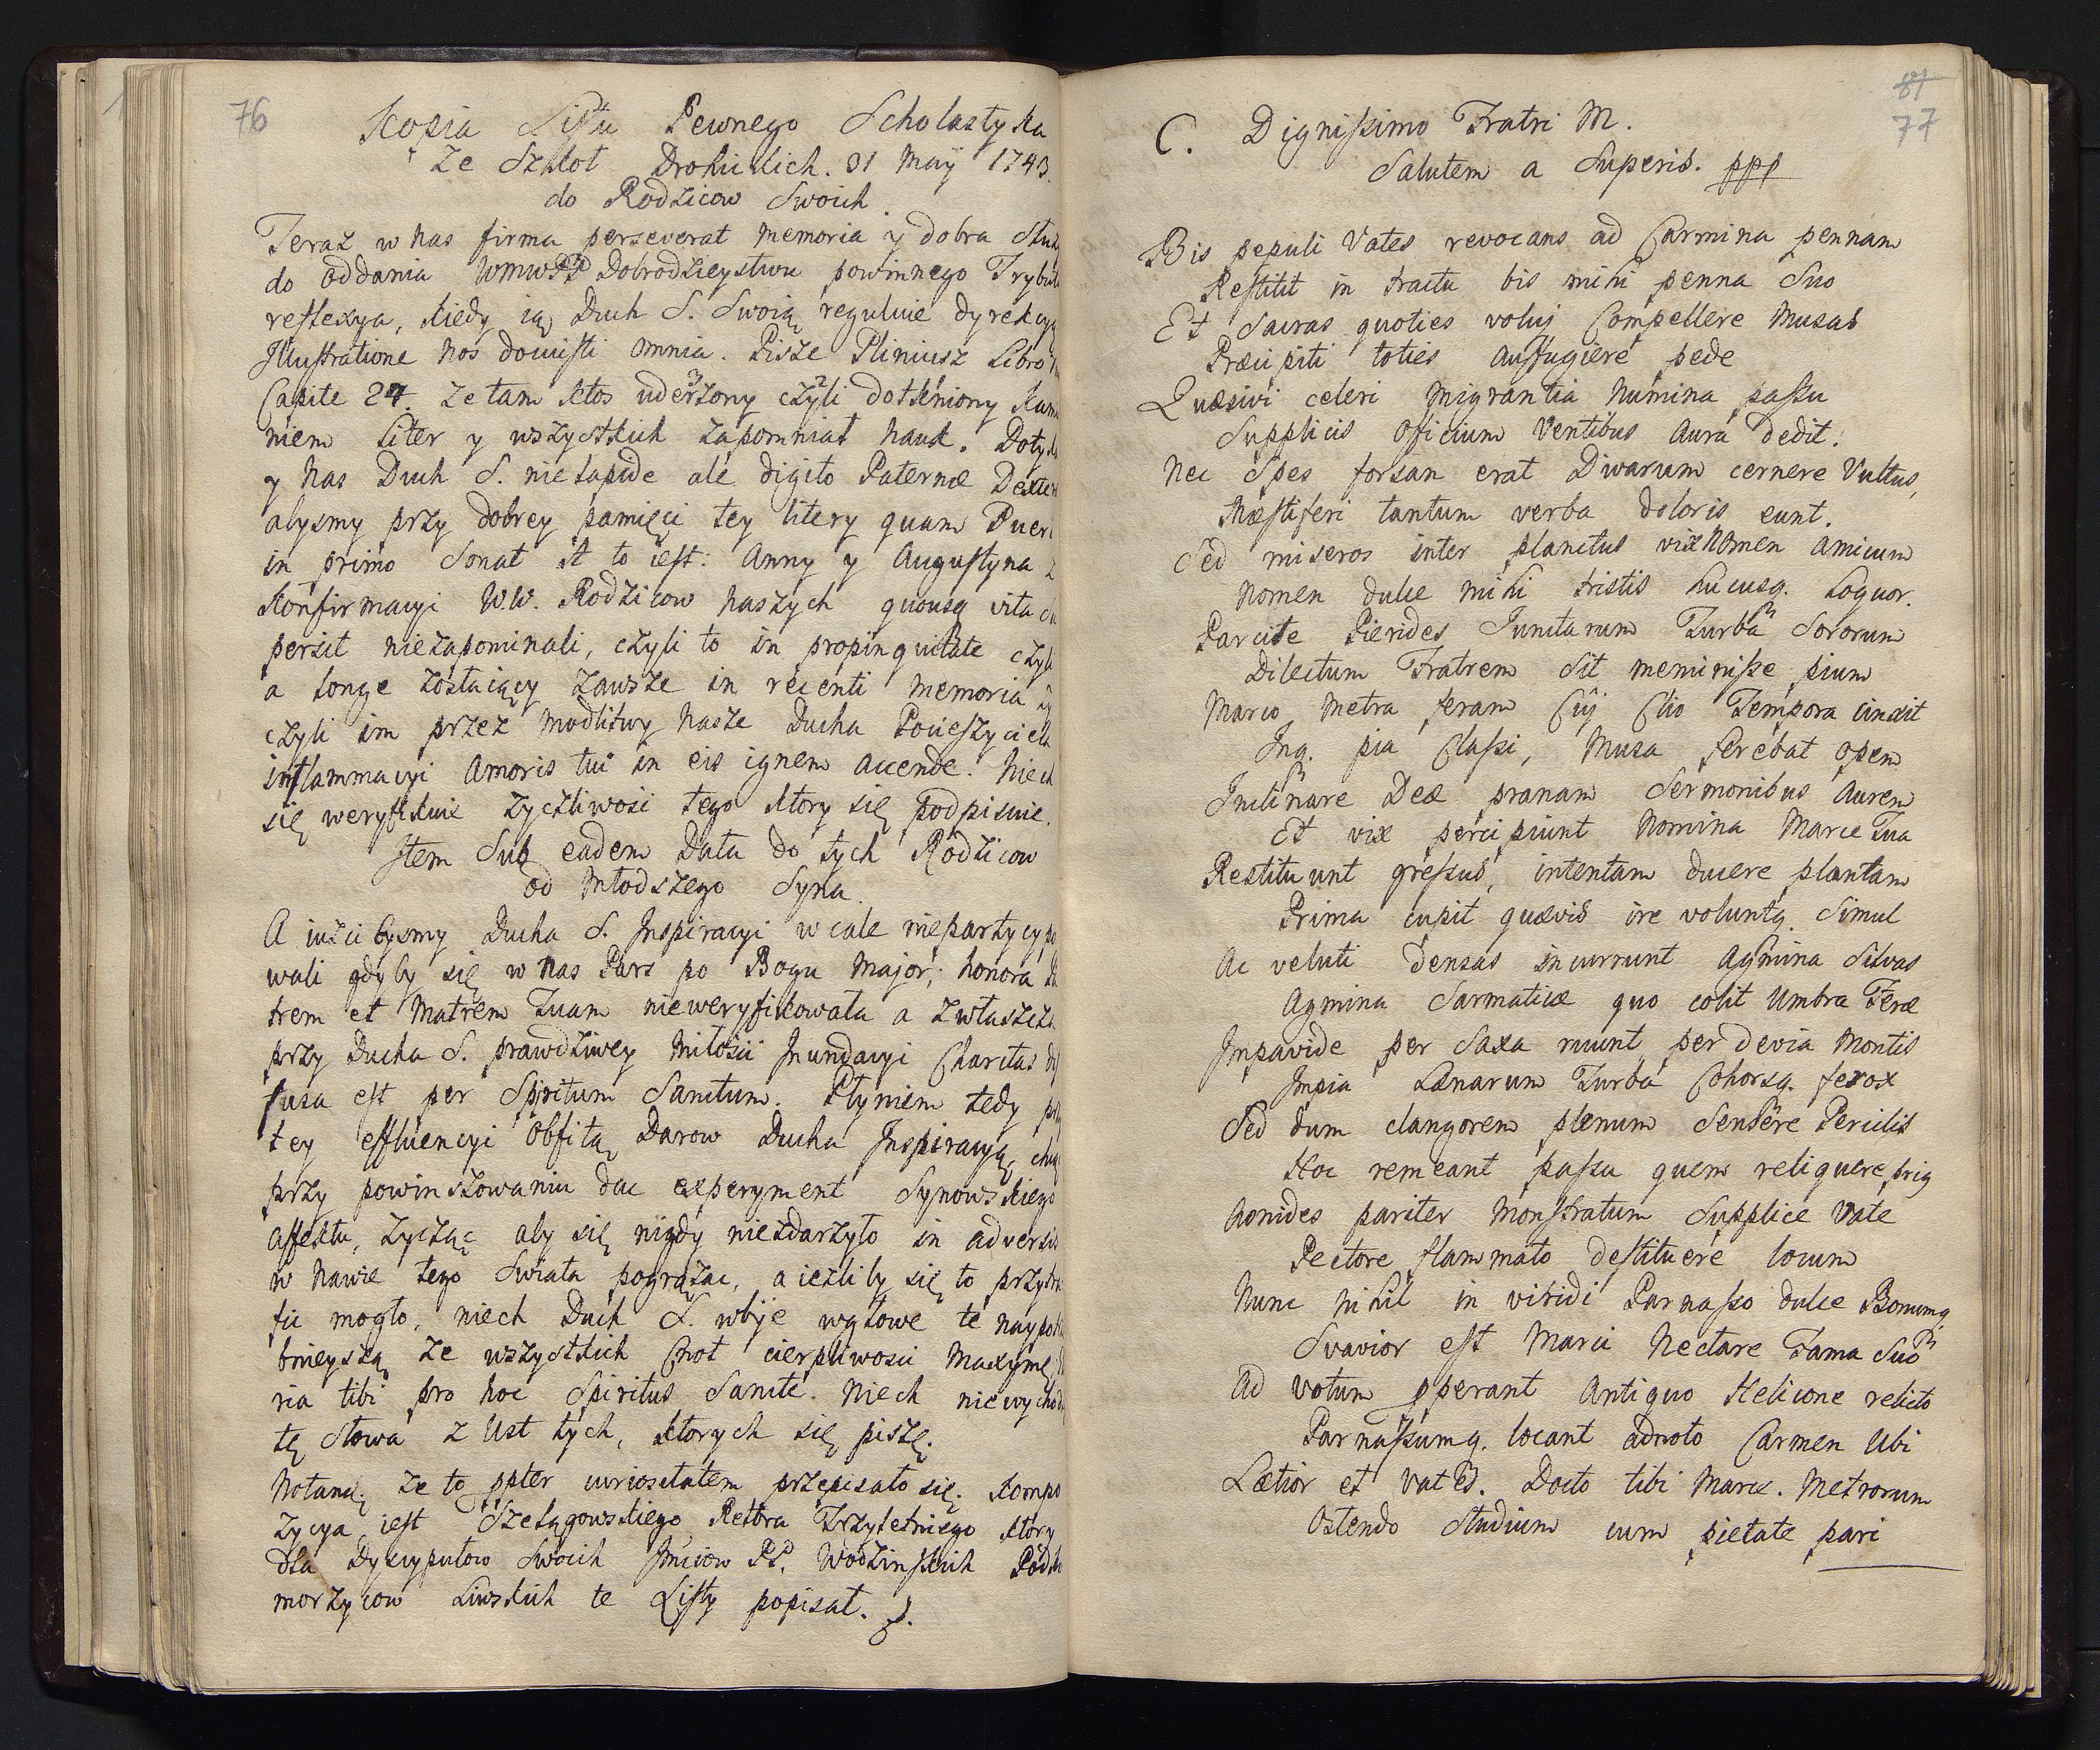 76
Kopia Listu Pewnego Scholastyka
Ze Szkoł Drohickich. 31 Maij 1743.
do Rodzicow Swoich.
Teraz w nas firma perseverat memoria y dobra
do oddania WMWPP Dobrodzieystwu powinnego
reflexya, kiedy ią Duch S. Swoią reguluie dyrekcyą
Illustratione nos docuisti omnia. Pisze Pliniusz Libro
Capite 24. Ze tam ktos uderzony czyli dotkniony
niem liter y wszystkich zapomniał nauk.
y nas Duch S. nie lapide ale digito Paternæ
abysmy przy dobrey pamięci tey litery quam
in primo Sonat A to iest: Anny y Augustyna
Konfirmacyi W.W. Rodzicow naszych quousq vita
persit niezapominali, czyli to in propinquitate czyli
a longe zostaiący zawsze in recenti memoria
czyli im przez modlitwy nasze Ducha Pocieszyciela
inflammacyi Amoris tui in eis ignem accende. Niech
się weryfikuie zyczliwość tego ktory się podpisuie.
Item Sub eadem Data do tych Rodzicow
od Młodszego Syna.
A iużci bysmy Ducha S. Inspiracyi w cale
wali gdyby się w nas Pars po Bogu Major; honora
trem et Matrem Tuam nieweryfikowała a zwłaszcza
przy Ducha S. prawdziwey miłości Inundacyi Charitas
fusa est per Spiritum Sanctum. Płyniem tedy
tey effluencyi Obfitą Darow Ducha Inspiracyą,
przy powinszowaniu dac experyment Synowskiego
Affektu, zycząc aby się nigdy niezdarzyło in adversis
w nawie tego Swiata pogrązac, a ieżliby się to
fic mogło, niech Duch S. wbije wgłowe te
bnieyszą ze wszystkich Cnot cierpliwosci Maxymę,
ria tibi pro hoc Spiritus Sancte. Niech
tę słowa z Ust tych, ktorych się piszę.
Notand. ze to ppter curiositatem przepisało się.
zycya iest Szelągowskiego Retora Trzyletniego ktory
dla Dyscypułow Swoich Jmciow PP. Wodzinskich
morzycow Liwskich te Listy popisał.
81
77
C. Dignissimo Fratri M.
Salutem a Superis. ppl
Bis pepuli Vates revocans ad Carmina pennam
Restitit in tractu bis mihi penna Suo
Et Sacras quoties voluj Compellere Musas
Præcipiti toties auffugiere pede
Quæsivi celeri migrantia Numina passu
Supplicis officium Ventibus Aura dedit.
Nec Spes forsan erat Divarum cernere Vultus,
Mæstiferi tantum verba doloris eunt.
Sed miseros inter planctus vix Nomen Amicum
Nomen dulce mihi tristis hucusq. Loquor.
Parcite Pierides Junctarum Turba Sororum
Dilectum Fratrem Sit meminisse pium
Marco Metra feram Cuj Clio Tempora cinxit
Inq. pia Classi, Musa ferebat opem
Inclinare Deæ pranam Sermonibus Aurem
Et vix percipiunt Nomina Marce Tua
Restituunt gressus, intentam ducere plantam
Prima cupit quævis ire voluntq. Simul
Ac veluti densas incurrunt Agmina Silvas
Agmina Sarmaticæ quo colit Umbra Feræ
Impavide per Saxa ruunt per devia Montis
Impia Lænarum Turba Cohorsq. ferox
Sed dum clangorem plenum Sensêre Periclis
Hoc remeant passu quem reliquere prig
Aonides pariter Monstratum Supplice Vate
Pectore flammato destituere locum
Nunc nihil in viridi Parnasso dulce Bonumq
Svavior est Marci Nectare Fama Suo
Ad votum pperant Antiquo Helicone relicto
Parnassumq. locant adnoto Carmen Ubi
Lætior et vates. Docto tibi Marce. Metrorum
Ostendo Studium cum pietate pari